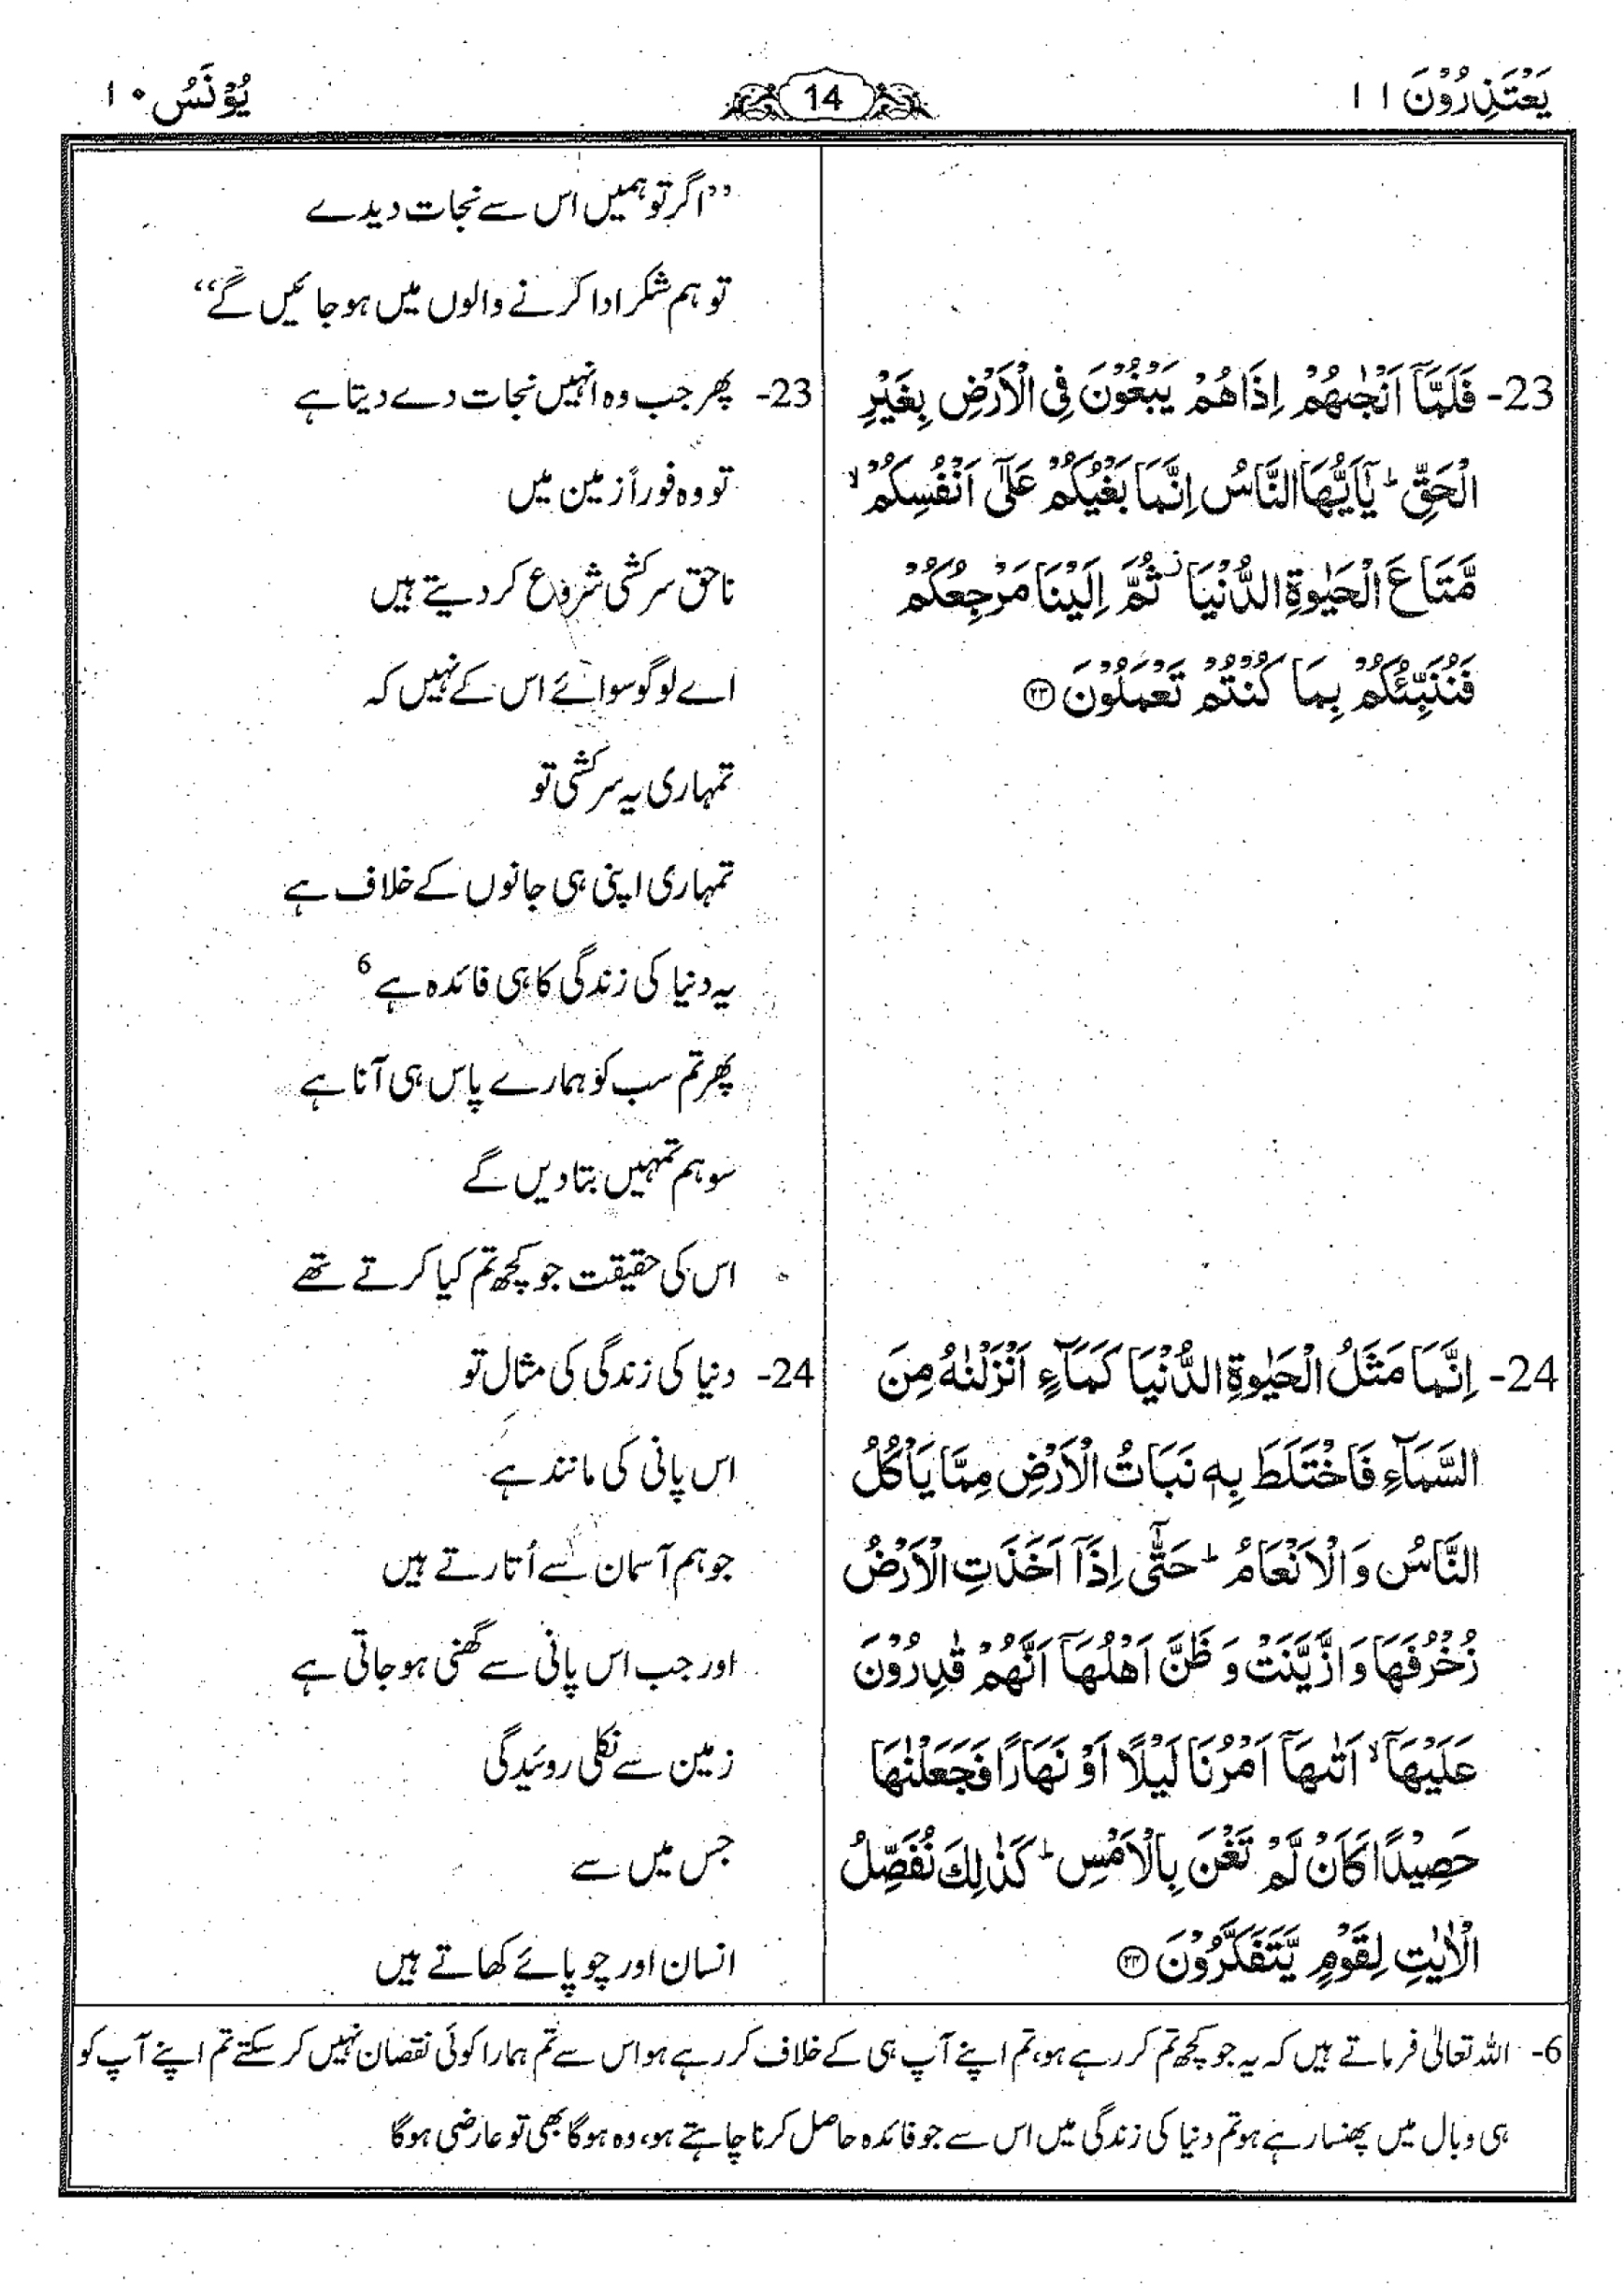 یَعْتَذِرُوْنَ ۱۱
14
یُوْنَسُ ۱۰
23- فَلَمَّاۤ اَنْجٰىهُمْ اِذَا هُمْ یَبْغُوْنَ فِی الْاَرْضِ بِغَیْرِ
الْحَقِّ ؕ یٰۤاَیُّهَا النَّاسُ اِنَّمَا بَغْیُكُمْ عَلٰۤی اَنْفُسِكُمْ ۙ
مَّتَاعَ الْحَیٰوةِ الدُّنْیَا ؗ ثُمَّ اِلَیْنَا مَرْجِعُكُمْ
فَنُنَبِّئُكُمْ بِمَا كُنْتُمْ تَعْمَلُوْنَ ﴿۲۳﴾
24- اِنَّمَا مَثَلُ الْحَیٰوةِ الدُّنْیَا كَمَآءٍ اَنْزَلْنٰهُ مِنَ
السَّمَآءِ فَاخْتَلَطَ بِهٖ نَبَاتُ الْاَرْضِ مِمَّا یَاْكُلُ
النَّاسُ وَ الْاَنْعَامُ ؕ حَتّٰۤی اِذَاۤ اَخَذَتِ الْاَرْضُ
زُخْرُفَهَا وَ ازَّیَّنَتْ وَ ظَنَّ اَهْلُهَاۤ اَنَّهُمْ قٰدِرُوْنَ
عَلَیْهَاۤ ۙ اَتٰىهَاۤ اَمْرُنَا لَیْلًا اَوْ نَهَارًا فَجَعَلْنٰهَا
حَصِیْدًا كَاَنْ لَّمْ تَغْنَ بِالْاَمْسِ ؕ كَذٰلِكَ نُفَصِّلُ
الْاٰیٰتِ لِقَوْمٍ یَّتَفَكَّرُوْنَ ﴿۲۴﴾
”اگر تو ہمیں اس سے نجات دیدے
تو ہم شکر ادا کرنے والوں میں ہو جائیں گے“
23- پھر جب وہ انہیں نجات دے دیتا ہے
تو وہ فوراً زمین میں
ناحق سرکشی شروع کر دیتے ہیں
اے لوگو سوائے اس کے نہیں کہ
تمہاری یہ سرکشی تو
تمہاری اپنی ہی جانوں کے خلاف ہے
یہ دنیا کی زندگی کا ہی فائدہ ہے 6
پھر تم سب کو ہمارے پاس ہی آنا ہے
سو ہم تمہیں بتادیں گے
اس کی حقیقت جو کچھ تم کیا کرتے تھے
24- دنیا کی زندگی کی مثال تو
اس پانی کی مانند ہے
جو ہم آسمان سے اُتارتے ہیں
اور جب اس پانی سے گھنی ہو جاتی ہے
زمین سے نکلی روئیدگی
جس میں سے
انسان اور چوپائے کھاتے ہیں
6- اللہ تعالٰی فرماتے ہیں کہ یہ جو کچھ تم کر رہے ہو، تم اپنے آپ ہی کے خلاف کر رہے ہو اس سے تم ہمارا کوئی نقصان نہیں کر سکتے تم اپنے آپ کو
ہی وبال میں پھنسا رہے ہو تم دنیا کی زندگی میں اس سے جو فائدہ حاصل کرنا چاہتے ہو، وہ ہوگا بھی تو عارضی ہوگا